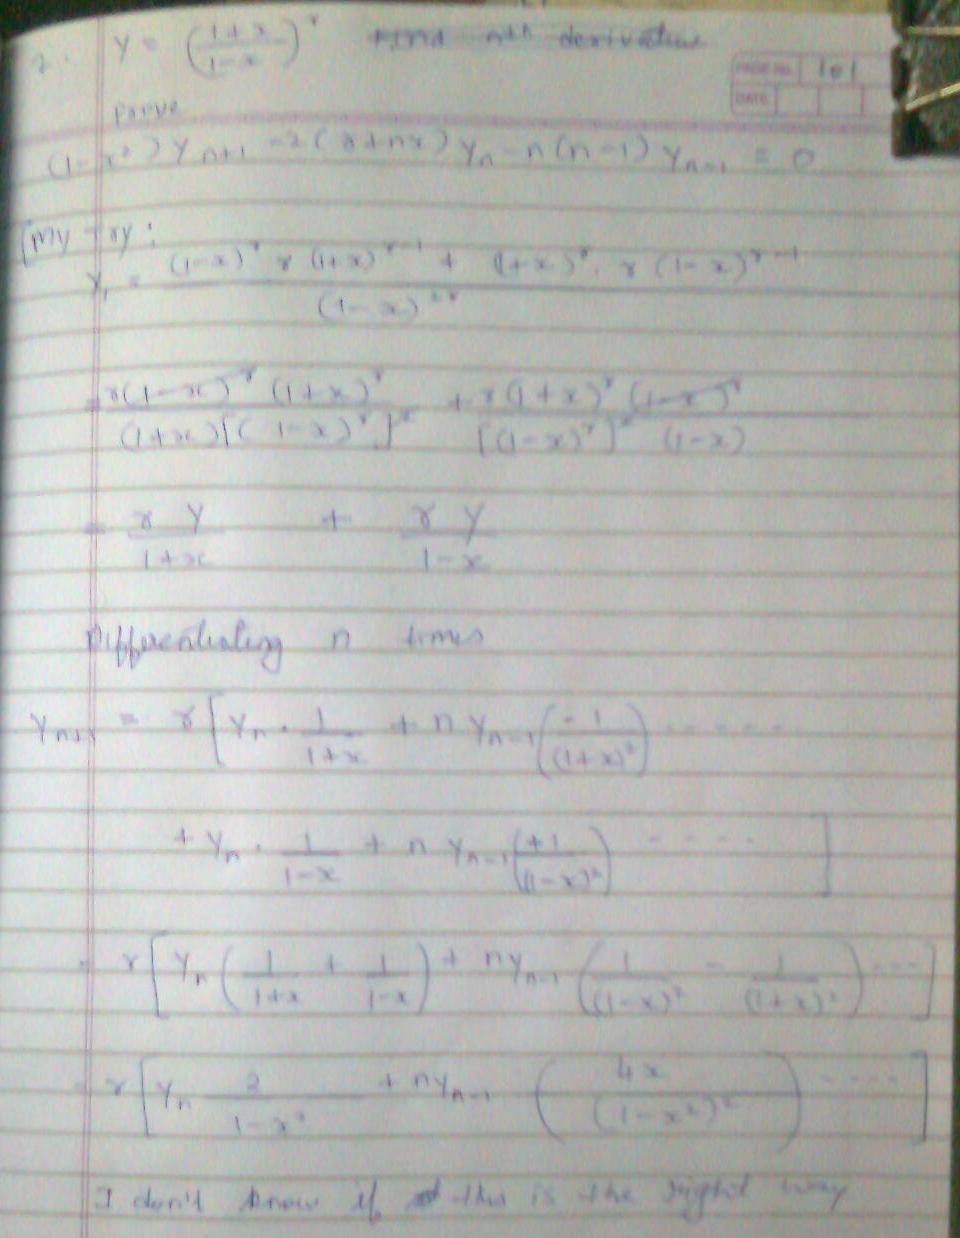 2. y = ((1+x)/(1-x))^r find nth derivative
PAGE No. 101
DATE
Prove
(1-x²) y_{n+1} - 2(r+nx) y_n - n(n-1) y_{n-1} = 0
[My try:
y_1 = ((1-x)^r r (1+x)^{r-1} + (1+x)^r . r (1-x)^{r-1}) / (1-x)^{2r}
= r(1-x)^r (1+x)^r / ((1+x)[(1-x)^r]^2) + r(1+x)^r (1-x)^r / ([(1-x)^r]^2 (1-x))
= r y / (1+x) + r y / (1-x)
Differentiating n times
y_{n+1} = r [ y_n . 1/(1+x) + n y_{n-1} (-1/(1+x)²) ......
+ y_n . 1/(1-x) + n y_{n-1} (+1/(1-x)²) .... ]
= r [ y_n (1/(1+x) + 1/(1-x)) + n y_{n-1} (1/(1-x)² - 1/(1+x)²) .... ]
= r [ y_n 2/(1-x²) + n y_{n-1} (4x/(1-x²)²) .... ]
I don't know if this is the right way